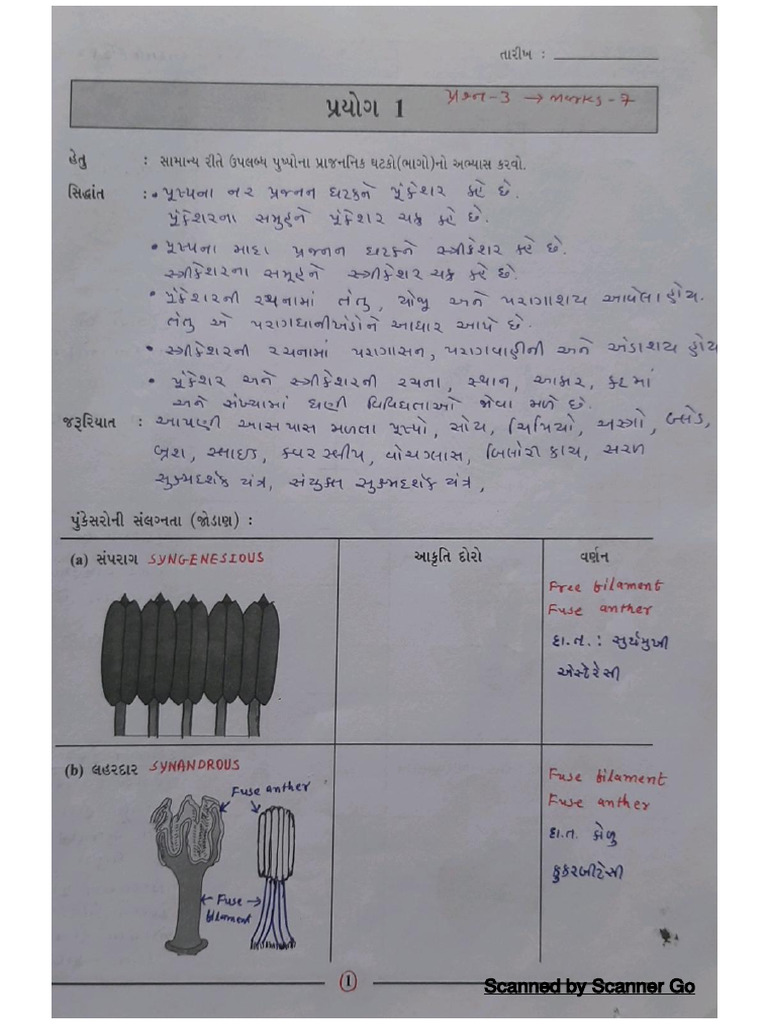 તારીખ :
પ્રયોગ 1 પ્રશ્ન-3 → marks-7
હેતુ : સામાન્ય રીતે ઉપલબ્ધ પુષ્પોના પ્રાજનનિક ઘટકો(ભાગો)નો અભ્યાસ કરવો.
સિદ્ધાંત : • પુષ્પના નર પ્રજનન ઘટકને પુંકેશર કહે છે.
પુંકેશરના સમુહને પુંકેશર ચક્ર કહે છે.
• પુષ્પના માદા પ્રજનન ઘટકને સ્ત્રીકેશર કહે છે.
સ્ત્રીકેશરના સમૂહને સ્ત્રીકેશર ચક્ર કહે છે.
• પુંકેશરની રચનામાં તંતુ, યોજી અને પરાગાશય આવેલા હોય.
તંતુ એ પરાગધાનીખંડોને આધાર આપે છે.
• સ્ત્રીકેશરની રચનામાં પરાગાસન, પરાગવાહીની અને અંડાશય હોય
• પુંકેશર અને સ્ત્રીકેશરની રચના, સ્થાન, આકાર, કદમાં
અને સંખ્યામાં ઘણી વિવિધતાઓ જોવા મળે છે.
જરૂરિયાત : આપણી આસપાસ મળતા પુષ્પો, સોય, ચિપિયો, અસ્ત્રો, બ્લેડ,
બ્રશ, સ્લાઇડ, કવર સ્લીપ, વોચગ્લાસ, બિલોરી કાચ, સરળ
સુક્મદર્શક યંત્ર, સંયુક્ત સુક્મદર્શક યંત્ર,
પુંકેસરોની સંલગ્નતા (જોડાણ) :
(a) સંપરાગ SYNGENESIOUS
આકૃતિ દોરો
વર્ણન
Free filament
Fuse anther
દા.ત. : સુર્યમુખી
એસ્ટેરેસી
(b) લહરદાર SYNANDROUS
Fuse anther
Fuse
filament
Fuse filament
Fuse anther
દા.ત. કોળુ
કુકરબીટેસી
1
Scanned by Scanner Go